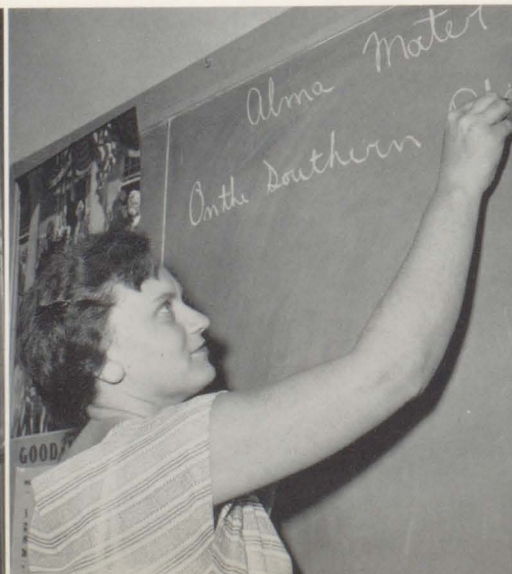 Alma Mater
On the Southern
GOOD